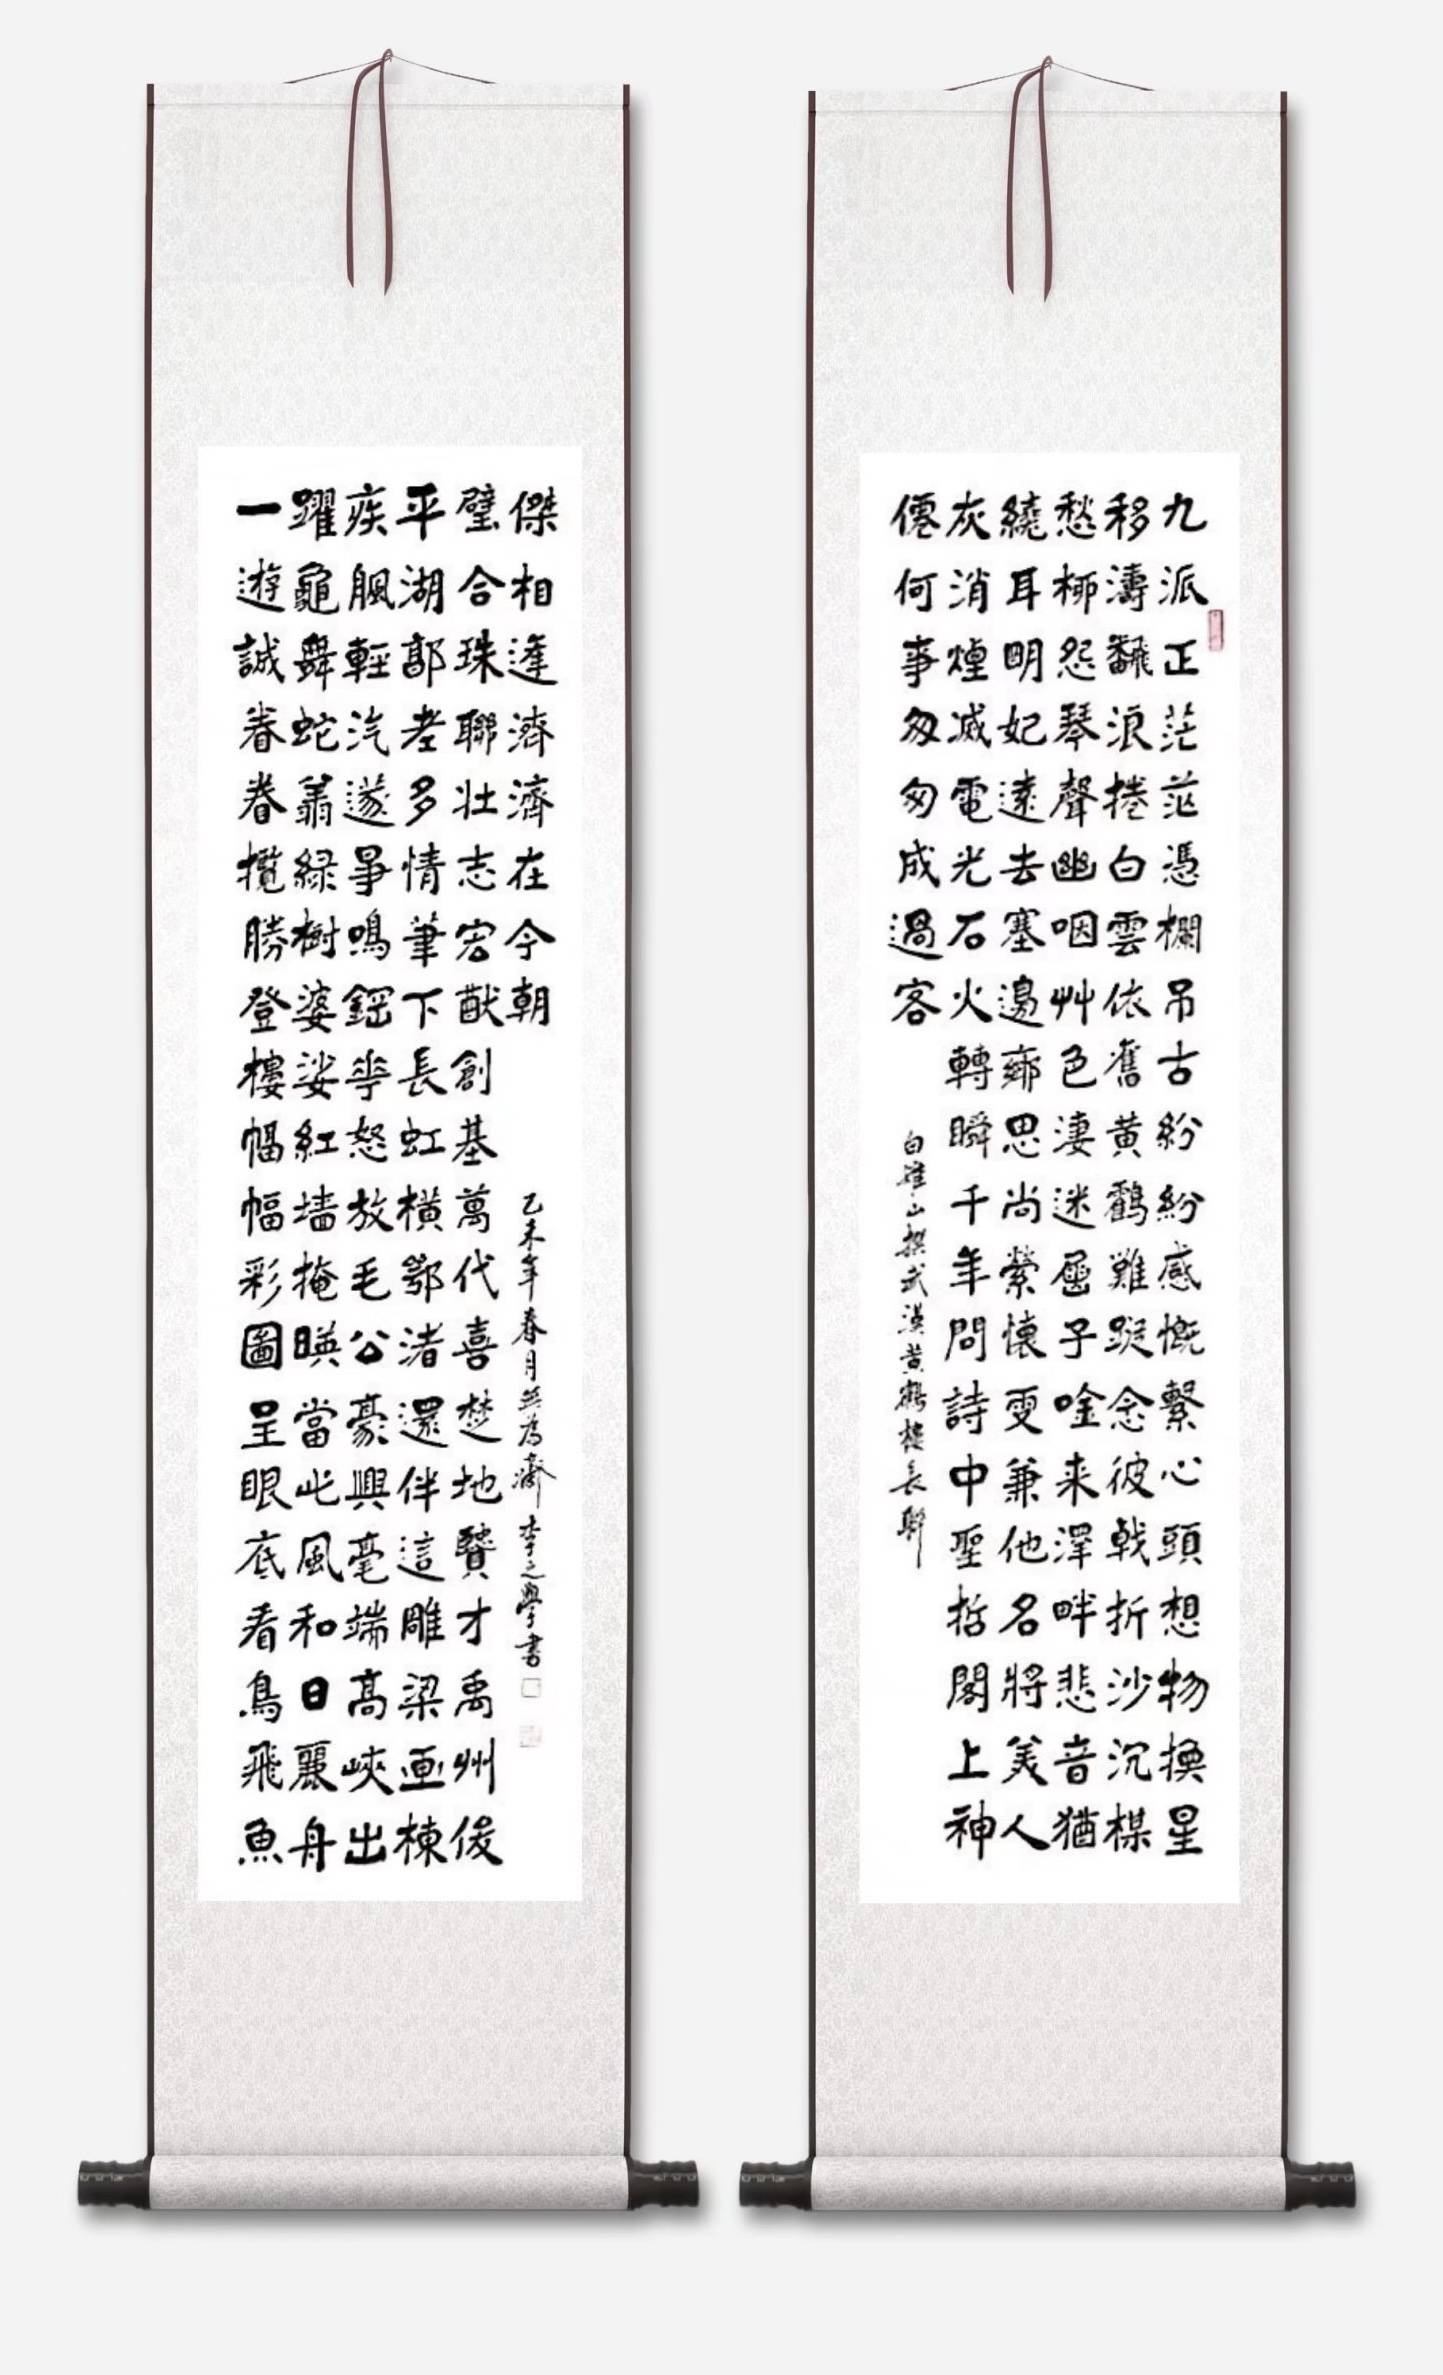 九派正茫茫憑欄吊古紛紛感慨繫心頭想物換星
移濤飜浪捲白雲依舊黃鶴難蹤念彼戟折沙沉楳
愁桺怨琴聲幽咽艸色淒迷屈子唫来澤畔悲音猶
繞耳明妃遠去塞邊鄉思尚縈懷更兼他名將美人
灰消煙滅電光石火轉瞬千年問詩中聖哲閣上神
僊何事匆匆成過客
白雉山撰武漢黃鶴樓長聯
一遊誠眷眷攬勝登樓幅幅彩圖呈眼底看鳥飛魚
躍龜舞蛇翥綠樹婆娑紅墙掩暎當此風和日麗舟
疾颿輕汽篴爭鳴鋼花怒放毛公豪興毫端高峽出
平湖郭老多情筆下長虹橫鄂渚還伴這雕梁画棟
璧合珠聯壯志宏猷創基萬代喜楚地賢才禹州俊
傑相逢濟濟在今朝
乙未年春月無為齋李之學書